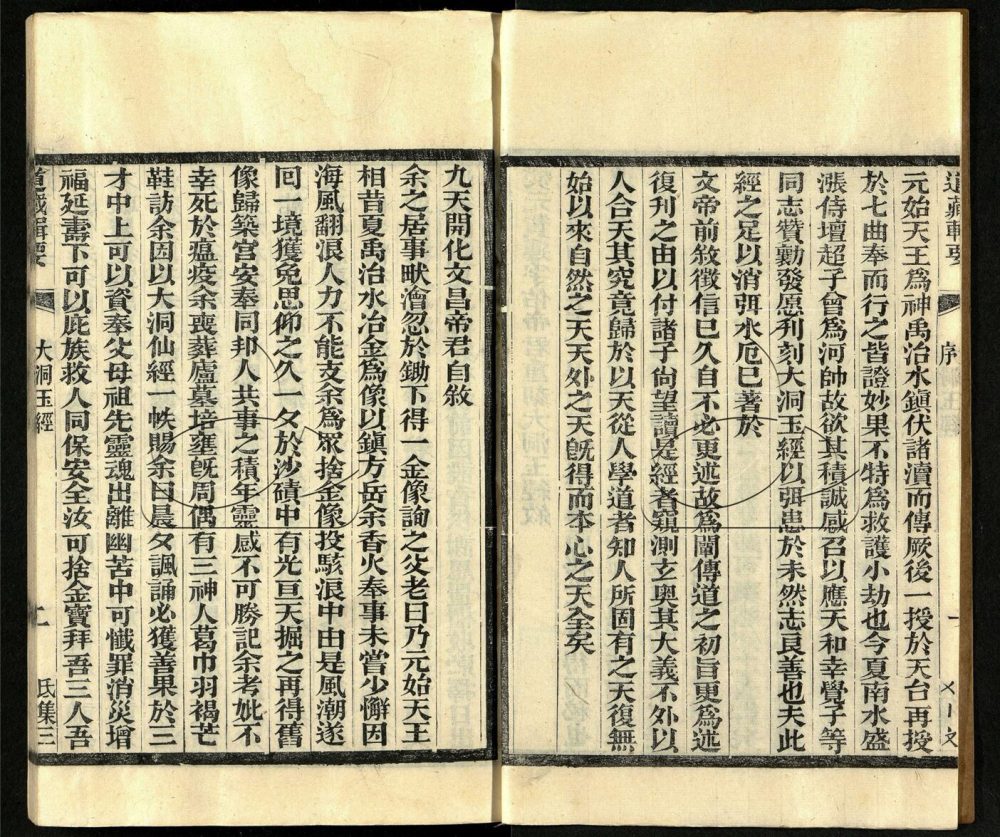 道藏輯要
序
元始天王爲神禹治水鎭伏諸瀆而傳厥後一授於天台再授
於七曲奉而行之皆證妙果不特爲救護小劫也今夏南水盛
漲侍壇超子會爲河帥故欲其積誠感召以應天和幸覺子等
同志贊勷發愿刋刻大洞玉經以弭患於未然志良善也夫此
經之足以消弭水厄巳著於
文帝前敘徵信巳久自不必更述故爲闡傳道之初旨更爲述
復刋之由以付諸子尙望讀是經者窺測玄奥其大義不外以
人合天其究竟歸於以天從人學道者知人所固有之天復無
始以來自然之天天外之天旣得而本心之天全矣
九天開化文昌帝君自敘
余之居事畎澮忽於鋤下得一金像詢之父老曰乃元始天王
相昔夏禹治水冶金爲像以鎭方岳余香火奉事未嘗少懈因
海風翻浪人力不能支余爲衆捨金像投駭浪中由是風潮遂
囘一境獲免思仰之久一夕於沙磧中有光亘天掘之再得舊
像歸築宮安奉同邦人共事之積年靈感不可勝記余考妣不
幸死於瘟疫余喪葬廬墓培壅旣周偶有三神人葛巾羽褐芒
鞋訪余因以大洞仙經一帙賜余曰晨夕諷誦必獲善果於三
才中上可以資奉父母祖先靈魂出離幽苦中可懴罪消災增
福延壽下可以庇族救人同保安全汝可捨金寶拜吾三人吾
道藏輯要
大洞玉經
二
氐集三